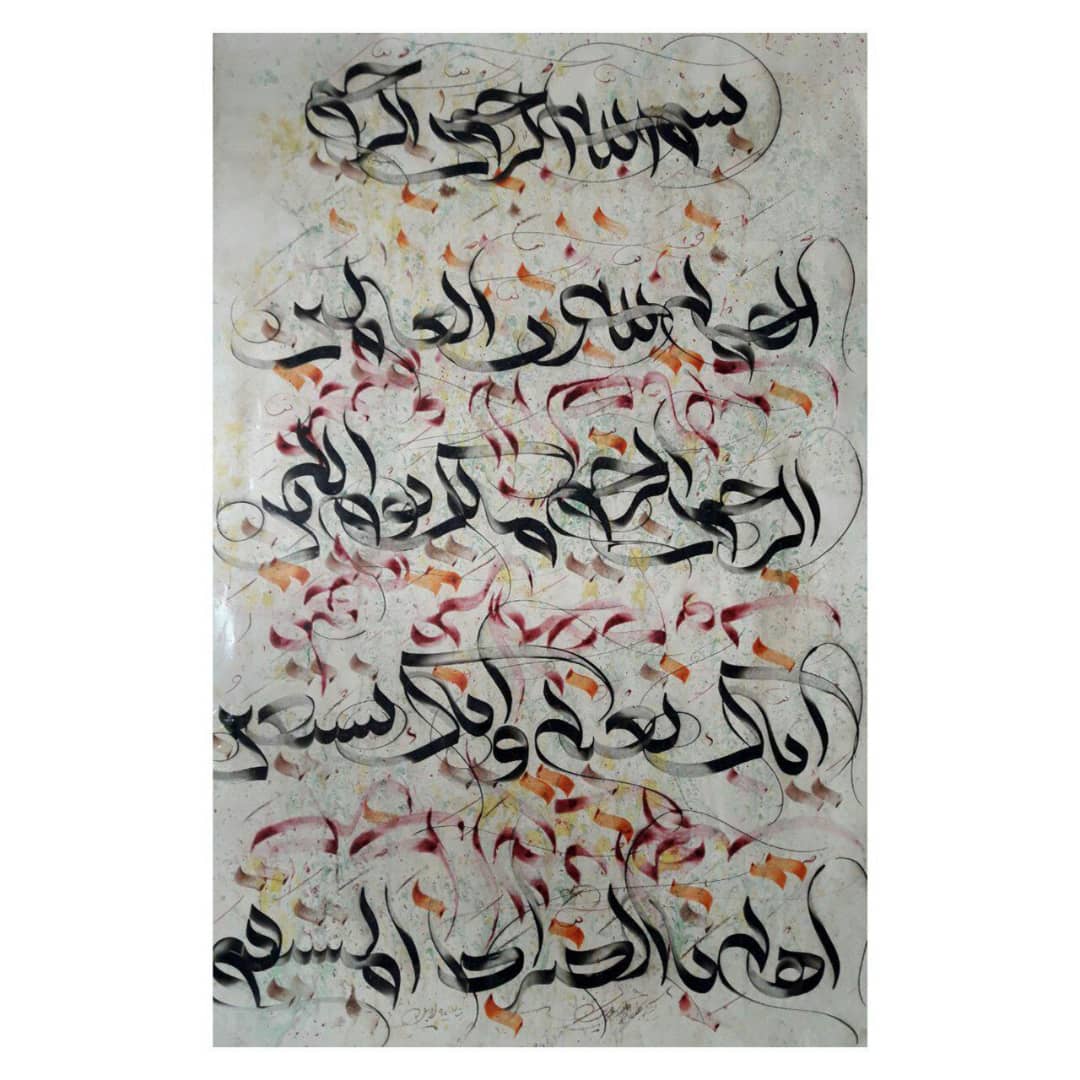 بسم الله الرحمن الرحیم
الحمد لله رب العالمین
الرحمن الرحیم مالک یوم الدین
ایاک نعبد و ایاک نستعین
اهدنا الصراط المستقیم